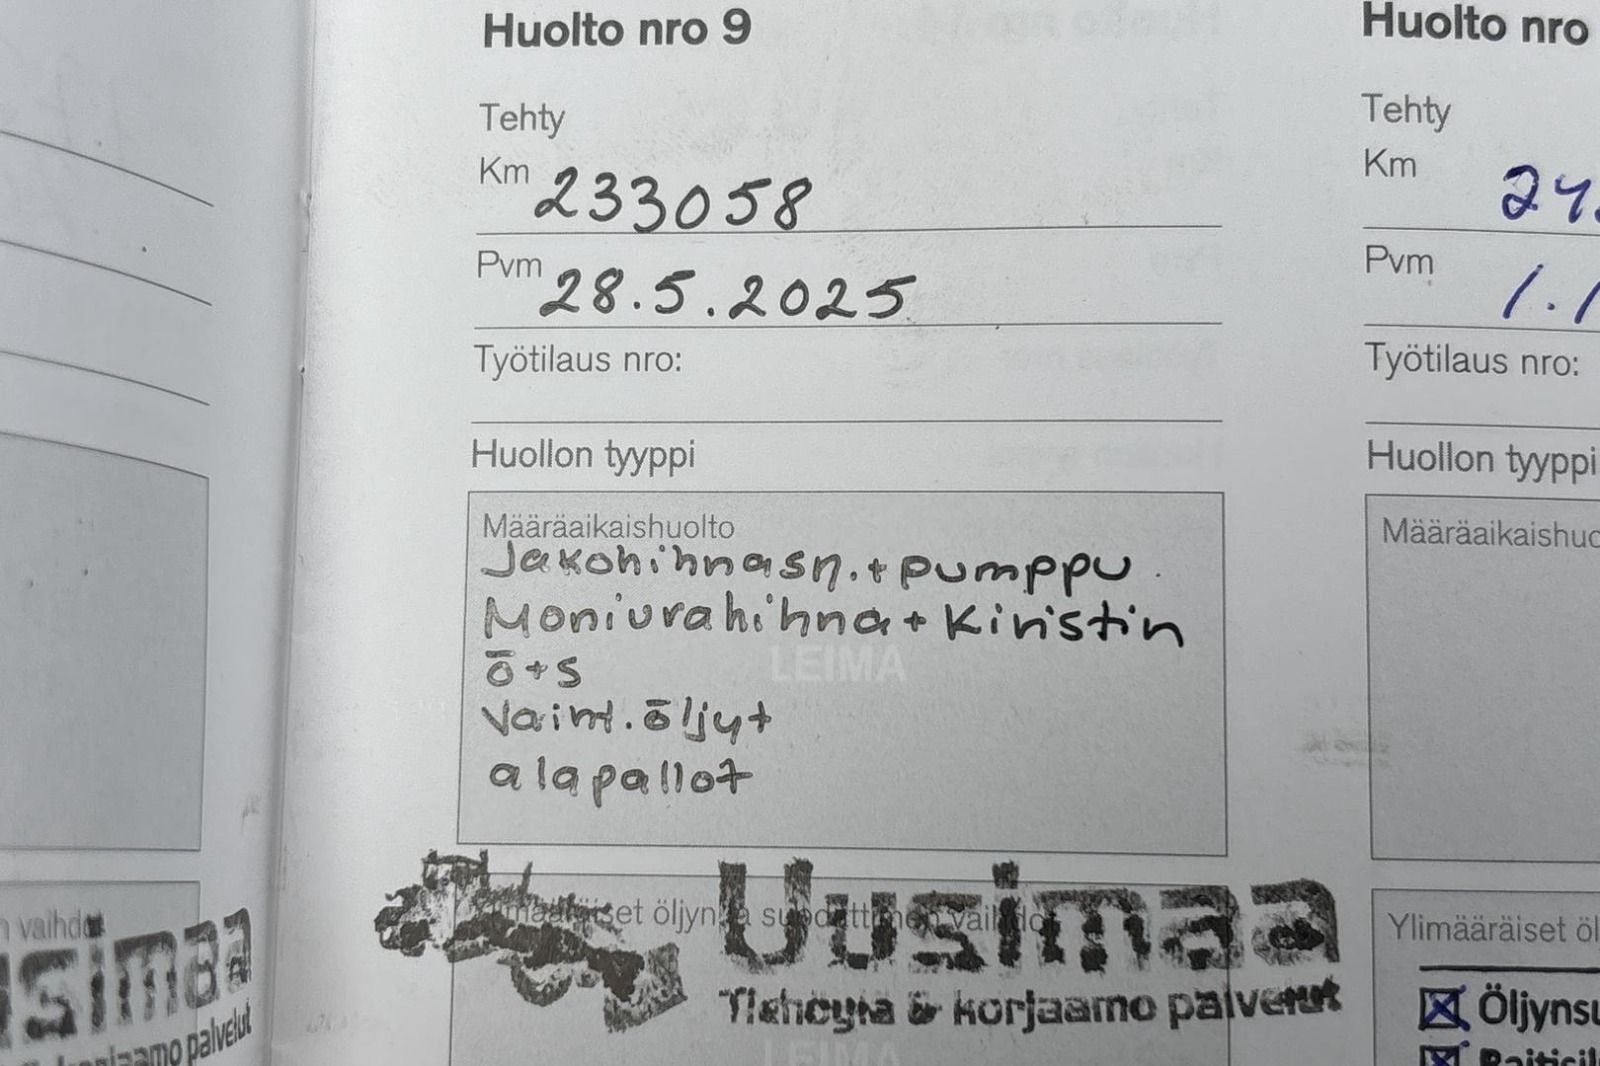 Huolto nro 9
Tehty
Km 233058
Pvm 28.5.2025
Työtilaus nro:
Huollon tyyppi
Määräaikaishuolto
Jakohihnasn.+pumppu
Moniurahihna+Kiristin
ö+s
Vaiht.öljyt
alapallot
LEIMA
Ylimääräiset öljyn ja suodattimen vaihdot
Uusimaa
Tiehöylä & korjaamo palvelut
LEIMA
Huolto nro
Tehty
Km
Pvm
Työtilaus nro:
Huollon tyyppi
Määräaikaishuo
Ylimääräiset öl
Öljynsu
n vaihdot
simaa
korjaamo palvelut